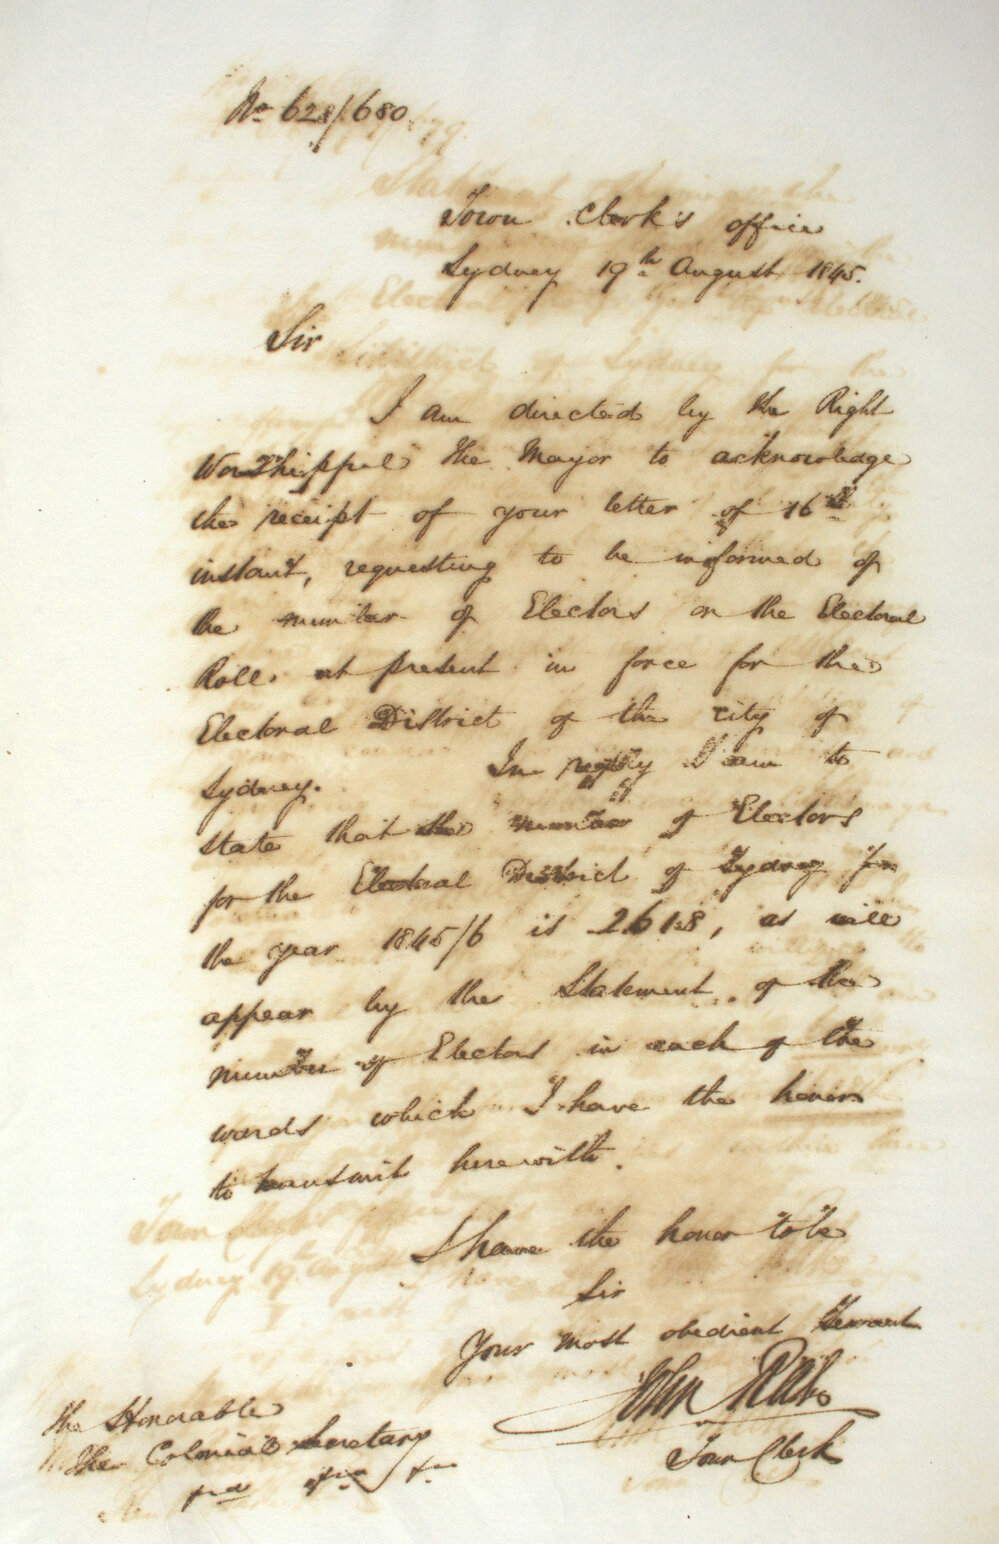 No 628/680.
Town Clerk's office
Sydney 19th August 1845.
Sir
I am directed by the Right
Worshippul the Mayor to acknowledge
the receipt of your letter of 16th
instant, requesting to be informed of
the number of Electors on the Electoral
Roll at present in force for the
Electoral District of the city of
Sydney. In reply I am to
state that the number of Electors
for the Electoral District of Sydney for
the year 1845/6 is 2618, as will
appear by the Statement of the
number of Electors in each of the
wards which I have the honor
to transmit herewith.
I have the honor to be
Sir
Your most obedient Servant
John
Town Clerk
The Honorable
The Colonial Secretary